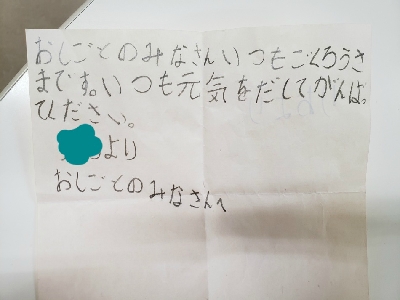 おしごとのみなさんいつもごくろうさ
まです。いつも元気をだしてがんば
ひださい。
より
おしごとのみなさんへ